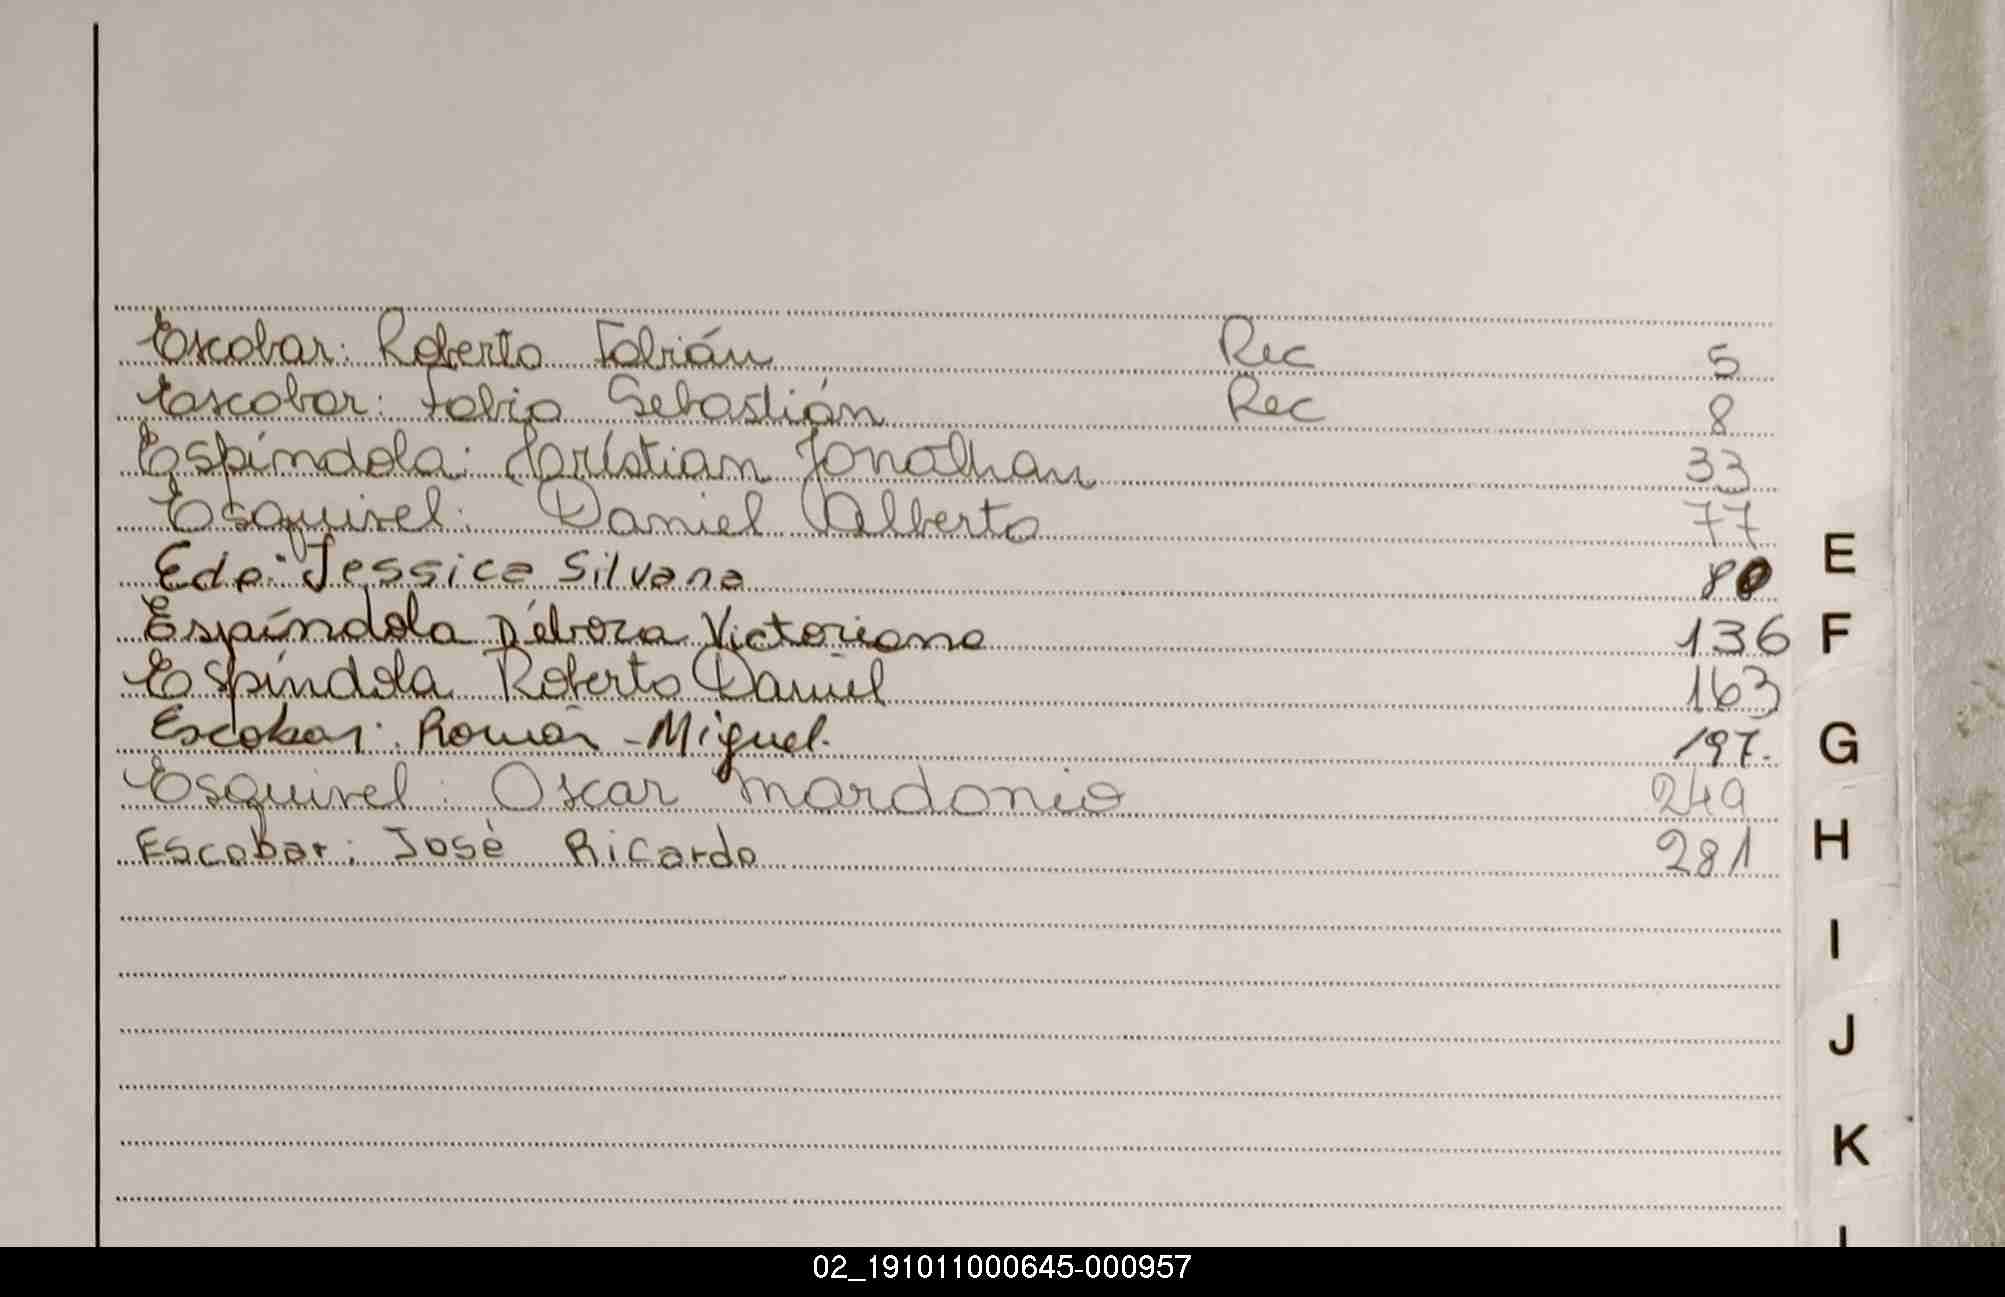 Escobar: Roberto Fabián Rec 5
Escobar: Fabio Sebastián Rec 8
Espíndola: Cristian Jonathan 33
Esquivel: Daniel Alberto 77
Edo: Jessica Silvana 80
Espíndola Débora Victoriana 136
Espíndola Roberto Daniel 163
Escobar: Román - Miguel. 197.
Esquivel: Oscar Mardonio 249
Escobar: José Ricardo 281
E
F
G
H
I
J
K
02_191011000645-000957